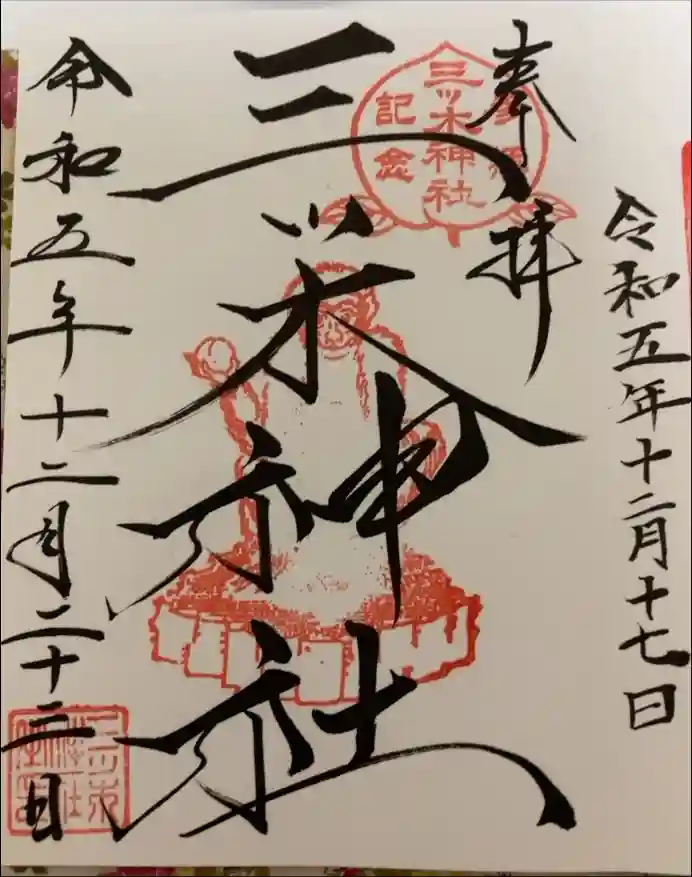 令和五年十二月十七日
奉拝
三ツ木神社
記念
三ツ木神社
令和五年十二月二十三日